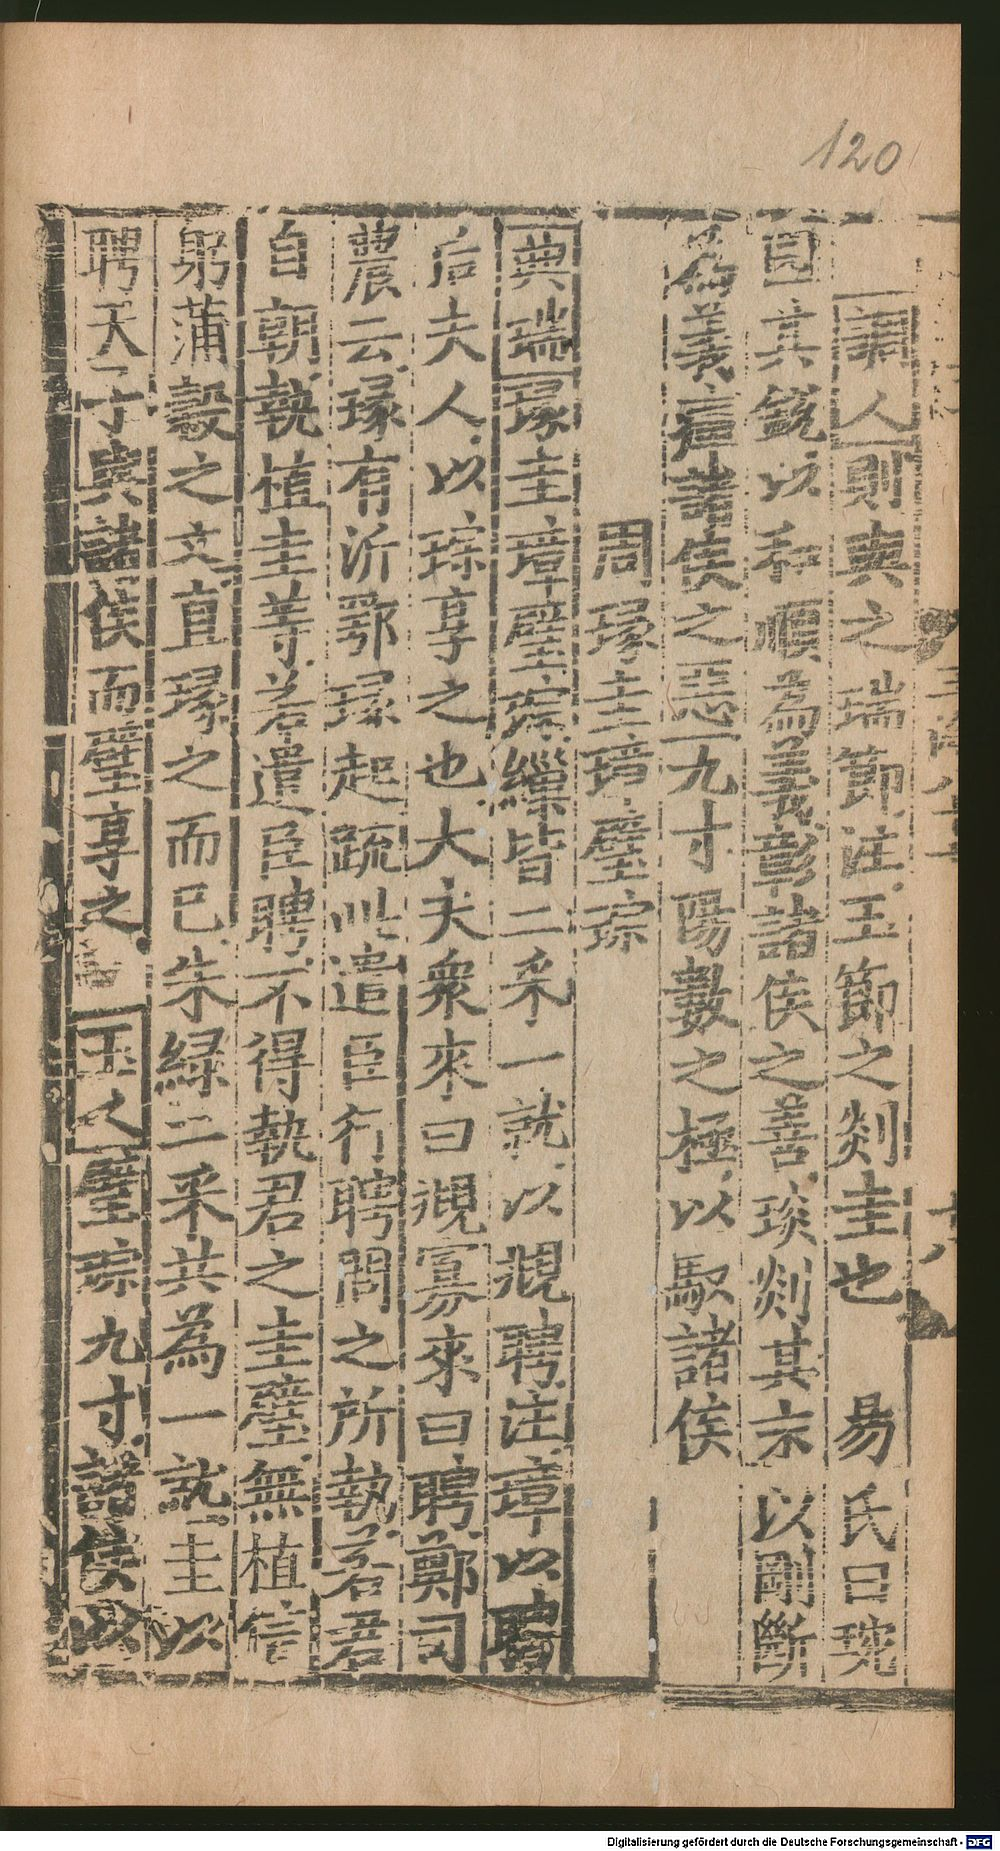 120
調人則與之瑞節注玉節之剡圭也 易氏曰琬
因其銳以和順為義彰諸侯之善琰剡其末以剛斷
為義 諸侯之惡九寸陽數之極以馭諸侯
周瑑圭璋璧琮
典瑞瑑圭璋璧琮繅皆二采一就以覜聘注璋以聘
后夫人以琮享之也大夫衆來曰覜寡來曰聘鄭司
農云瑑有沂鄂瑑起疏此遣臣行聘問之所執若君
自朝執植圭等若遣臣聘不得執君之圭璧無植信
躬蒲穀之文直瑑之而已朱綠二采共為一就圭以
聘天子與諸侯而璧享之 玉人璧琮九寸諸侯以
Digitalisierung gefördert durch die Deutsche Forschungsgemeinschaft - DFG